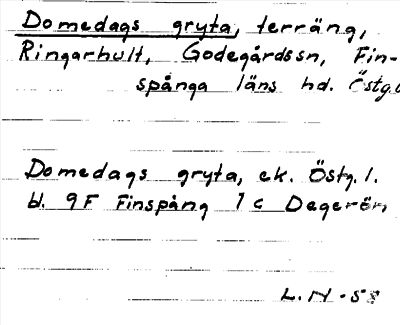 Domedags gryta, terräng,
Ringarhult, Godegårds sn, Fin-
spånga läns hd. Östg.
Domedags gryta, ek. Östg. l.
bl. 9F Finspång 1 c Degerön
L.N -58